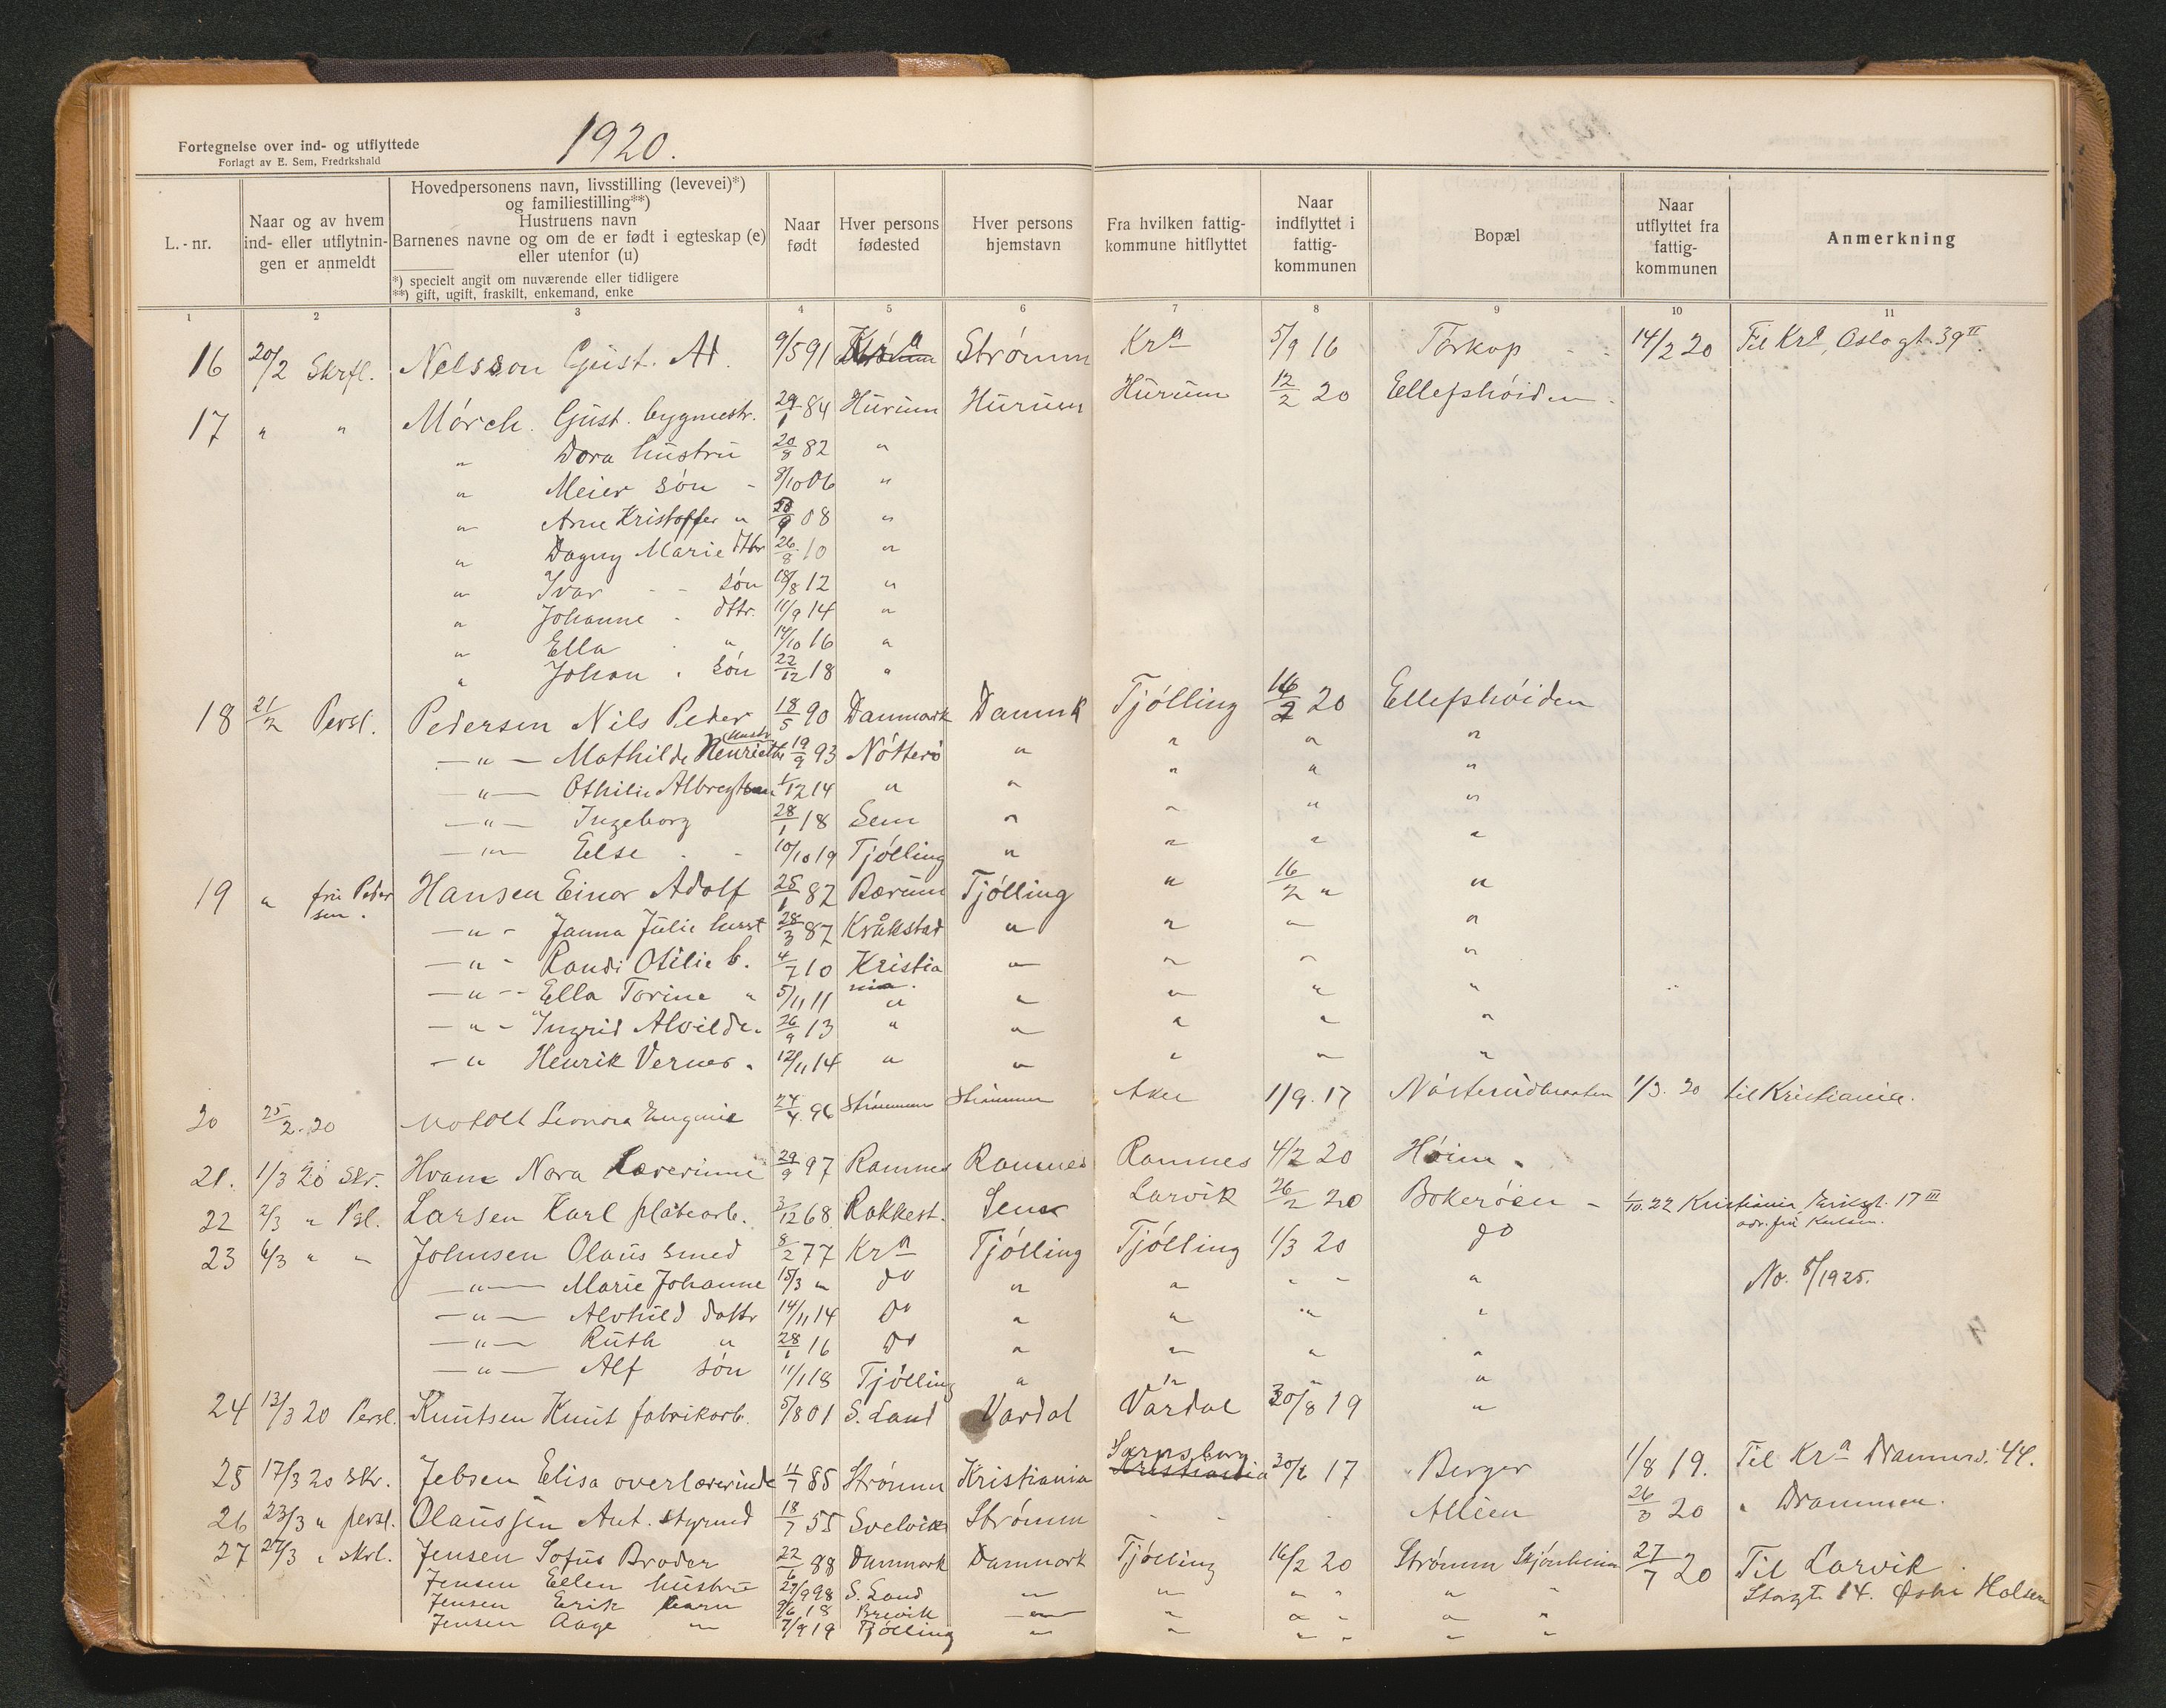 Fortegnelse over ind- og utflyttede
Forlagt av E. Sem, Fredrkshald
1920.
L.-nr.
Naar og av hvem ind- eller utflytnin- gen er anmeldt
Hovedpersonens navn, livsstilling (levevei)*)
og familiestilling**)
Hustruens navn
Barnenes navne og om de er født i egteskap (e)
eller utenfor (u)
*) specielt angit om nuværende eller tidligere
**) gift, ugift, fraskilt, enkemand, enke
Naar født
Hver persons fødested
Hver persons hjemstavn
Fra hvilken fattig- kommune hitflyttet
Naar indflyttet i fattig- kommunen
Bopæl
Naar utflyttet fra fattig- kommunen
Anmerkning
1 2 3 4 5 6 7 8 9 10 11
16 20/2 Skrftl. Nelsson Gust. Ad. 9/5 91 Kra Strömm Kra 5/9 16 Torkop 14/2 20 Til Kra, Oslogt. 39 II.
17 " " Mörch. Gust. bygmestr. 29/1 84 Hurum Hurum Hurum 12/2 20 Ellefshöiden
" Dora hustru 20/8 82 "
" Meier sön - 8/10 06 "
" Arne Kristoffer " 08 "
" Dagny Marie dttr 26/8 10 "
" Ivar - - sön 18/8 12 "
" Johanne - dttr. 11/9 14 "
" Ella " 14/10 16 "
" Johan . sön 22/12 18 "
18 21/2 Persl. Pedersen Nils Peder 18/5 90 Danmark Danmk Tjölling 16/2 20 Ellefshöiden
— " — Mathilde Henriette (hustr 19/9 93 Nötterö " " " "
— " — Othilie 1/12 14 " " " " "
— " — Ingeborg 28/1 18 Sem " " " "
— " — Else - - 10/10 19 Tjölling " " " "
19 " fru Peder sen. Hansen Einar Adolf 25/1 82 Bærum Tjölling " 16/2 " "
— " - Janna Julie hust 28/3 87 Kråkstad " " " "
— " - Randi Otilie b. 4/7 10 Kristia nia. " " " "
— " - Ella Torine " 5/11 11 " " " " "
— " - Ingrid Alvilde " 26/9 13 " " " " "
— " Henrik Verner " 12/11 14 " " " " "
20 25/2. 20 Leonora Eugenie 24/4. 96 Strömmen Strömmen Aker 1/9. 17 Nösterudbraaten 1/3. 20 til Kristiania.
21. 1/3 20 Skr. Hvam Nora Lærerinne 29/9 97 Ramnes Ramnes Ramnes 4/2 20 Höim.
22 2/3 " Psl. Larsen Karl platearb. 3/12 68 Rakkest. Sem Larvik 26/2 20 Bokeröen - 1/10. 22 Kristiania, Eriksgt. 17 III
23 6/3 " " Johnsen Olaus smed 8/2 77 Kra Tjölling Tjölling 1/3 20 do
— " — Marie Johanne 15/3 " do " " " " " No. 8/1925.
— " — Alvhild dattr 14/11 14 do " " " "
— " — Ruth " 28/1 16 do " " "
— " — Alf sön 11/1 18 Tjölling " " " "
24 13/3 20 Persl. Knutsen Knut fabrikarb. 5/8 01 S. Land Vardal Vardal 30/8 19 "
25 17/3 20 Skr. Jebsen Elisa overlærerinde 4/7 85 Strömm Kristiania Sarpsborg Kristiania 30/6 17 Berger 1/8 19. Til Kra Drammsv. 44.
26 23/3 " persl. Olaussen Ant. styrmd 18/7 55 Svelvik Strömm - - - Alléen 26/3 20 " Drammen.
27 27/3 " skrl. Jensen Sofus Broder 22/6 88 Danmark Danmark Tjölling 16/2 20 Strömm Skjönheim 27/7 20 Til Larvik
Jensen Ellen hustru 27/9 98 S. Land " " " " " " Storgt. 14. Halsen
Jensen Erik barn 9/6 18 Brevik " " " " " "
Jensen Aage " 7/9 19 Tjölling " " " " " "